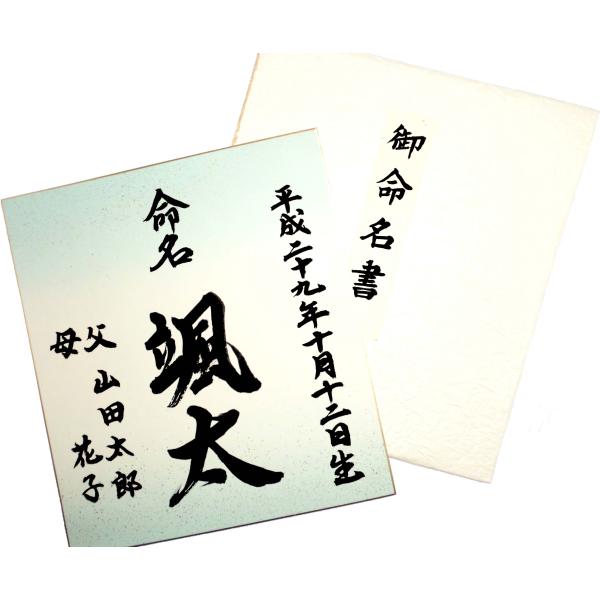 御命名書
平成二十九年十月十二日生
命名
颯太
父 山田太郎
母 花子